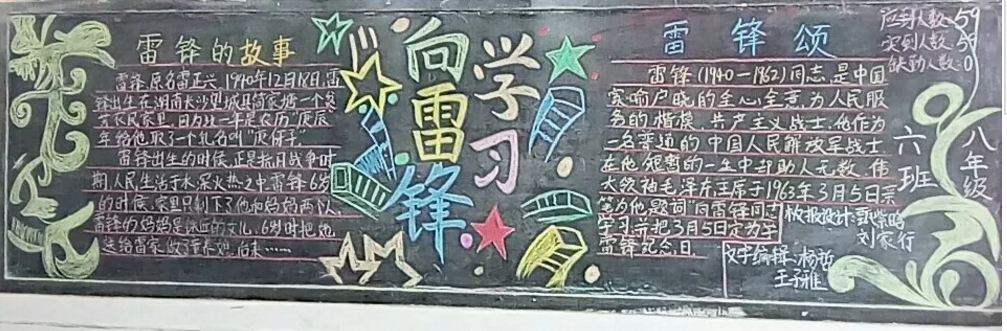 雷锋的故事
雷锋,原名雷正兴,1940年12月18日,雷
锋出生在湖南长沙望城县简家塘一个贫
苦农民家里,因为这一年是农历"庚辰
年给他取了个乳名叫"庚伢子"
雷锋出生的时候,正是抗日战争时
期,人民生活于水深火热之中雷锋6岁
的时候,家里只剩下了他和妈妈两人,
雷锋的妈妈是
送给雷家做童养媳,后来……
向雷锋
学习
雷锋颂
雷锋(1940-1962)同志,是中国
家喻户晓的全心全意为人民服
务的楷模,共产主义战士,他作为
一名普通的中国人民解放军战士
在他短暂的一生中却助人无数,伟
大领袖毛泽东主席于1963年3月5日亲
笔为他题词"向雷锋同志
学习"并把3月5日定为学
雷锋纪念日.
应到人数:59
实到人数:59
缺勤人数:0
八年级
六班
板报设计:
刘家行
文字编辑:杨哲
王子雅